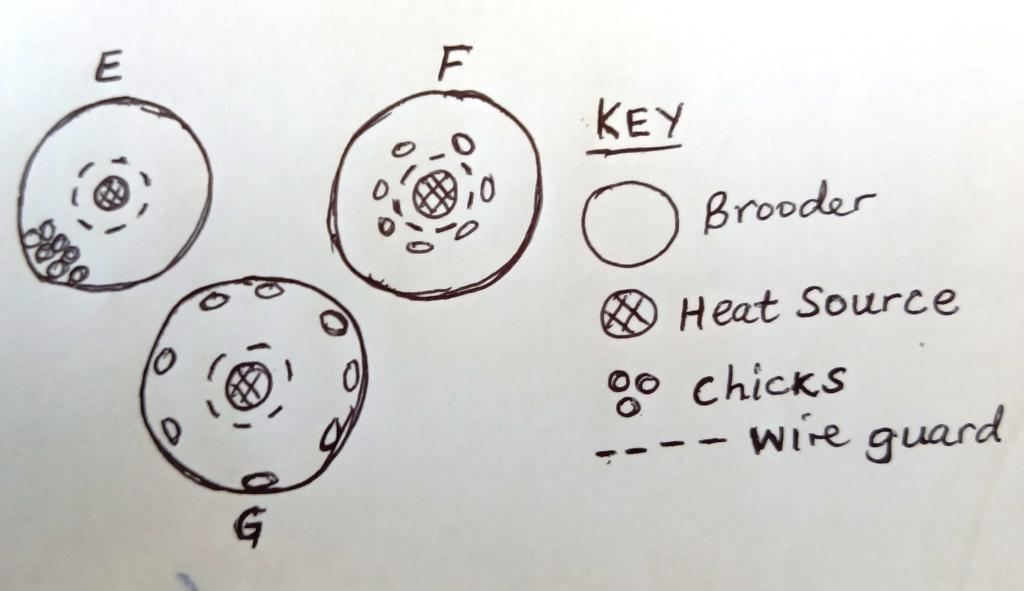 E
F
KEY
Brooder
Heat Source
chicks
wire guard
G